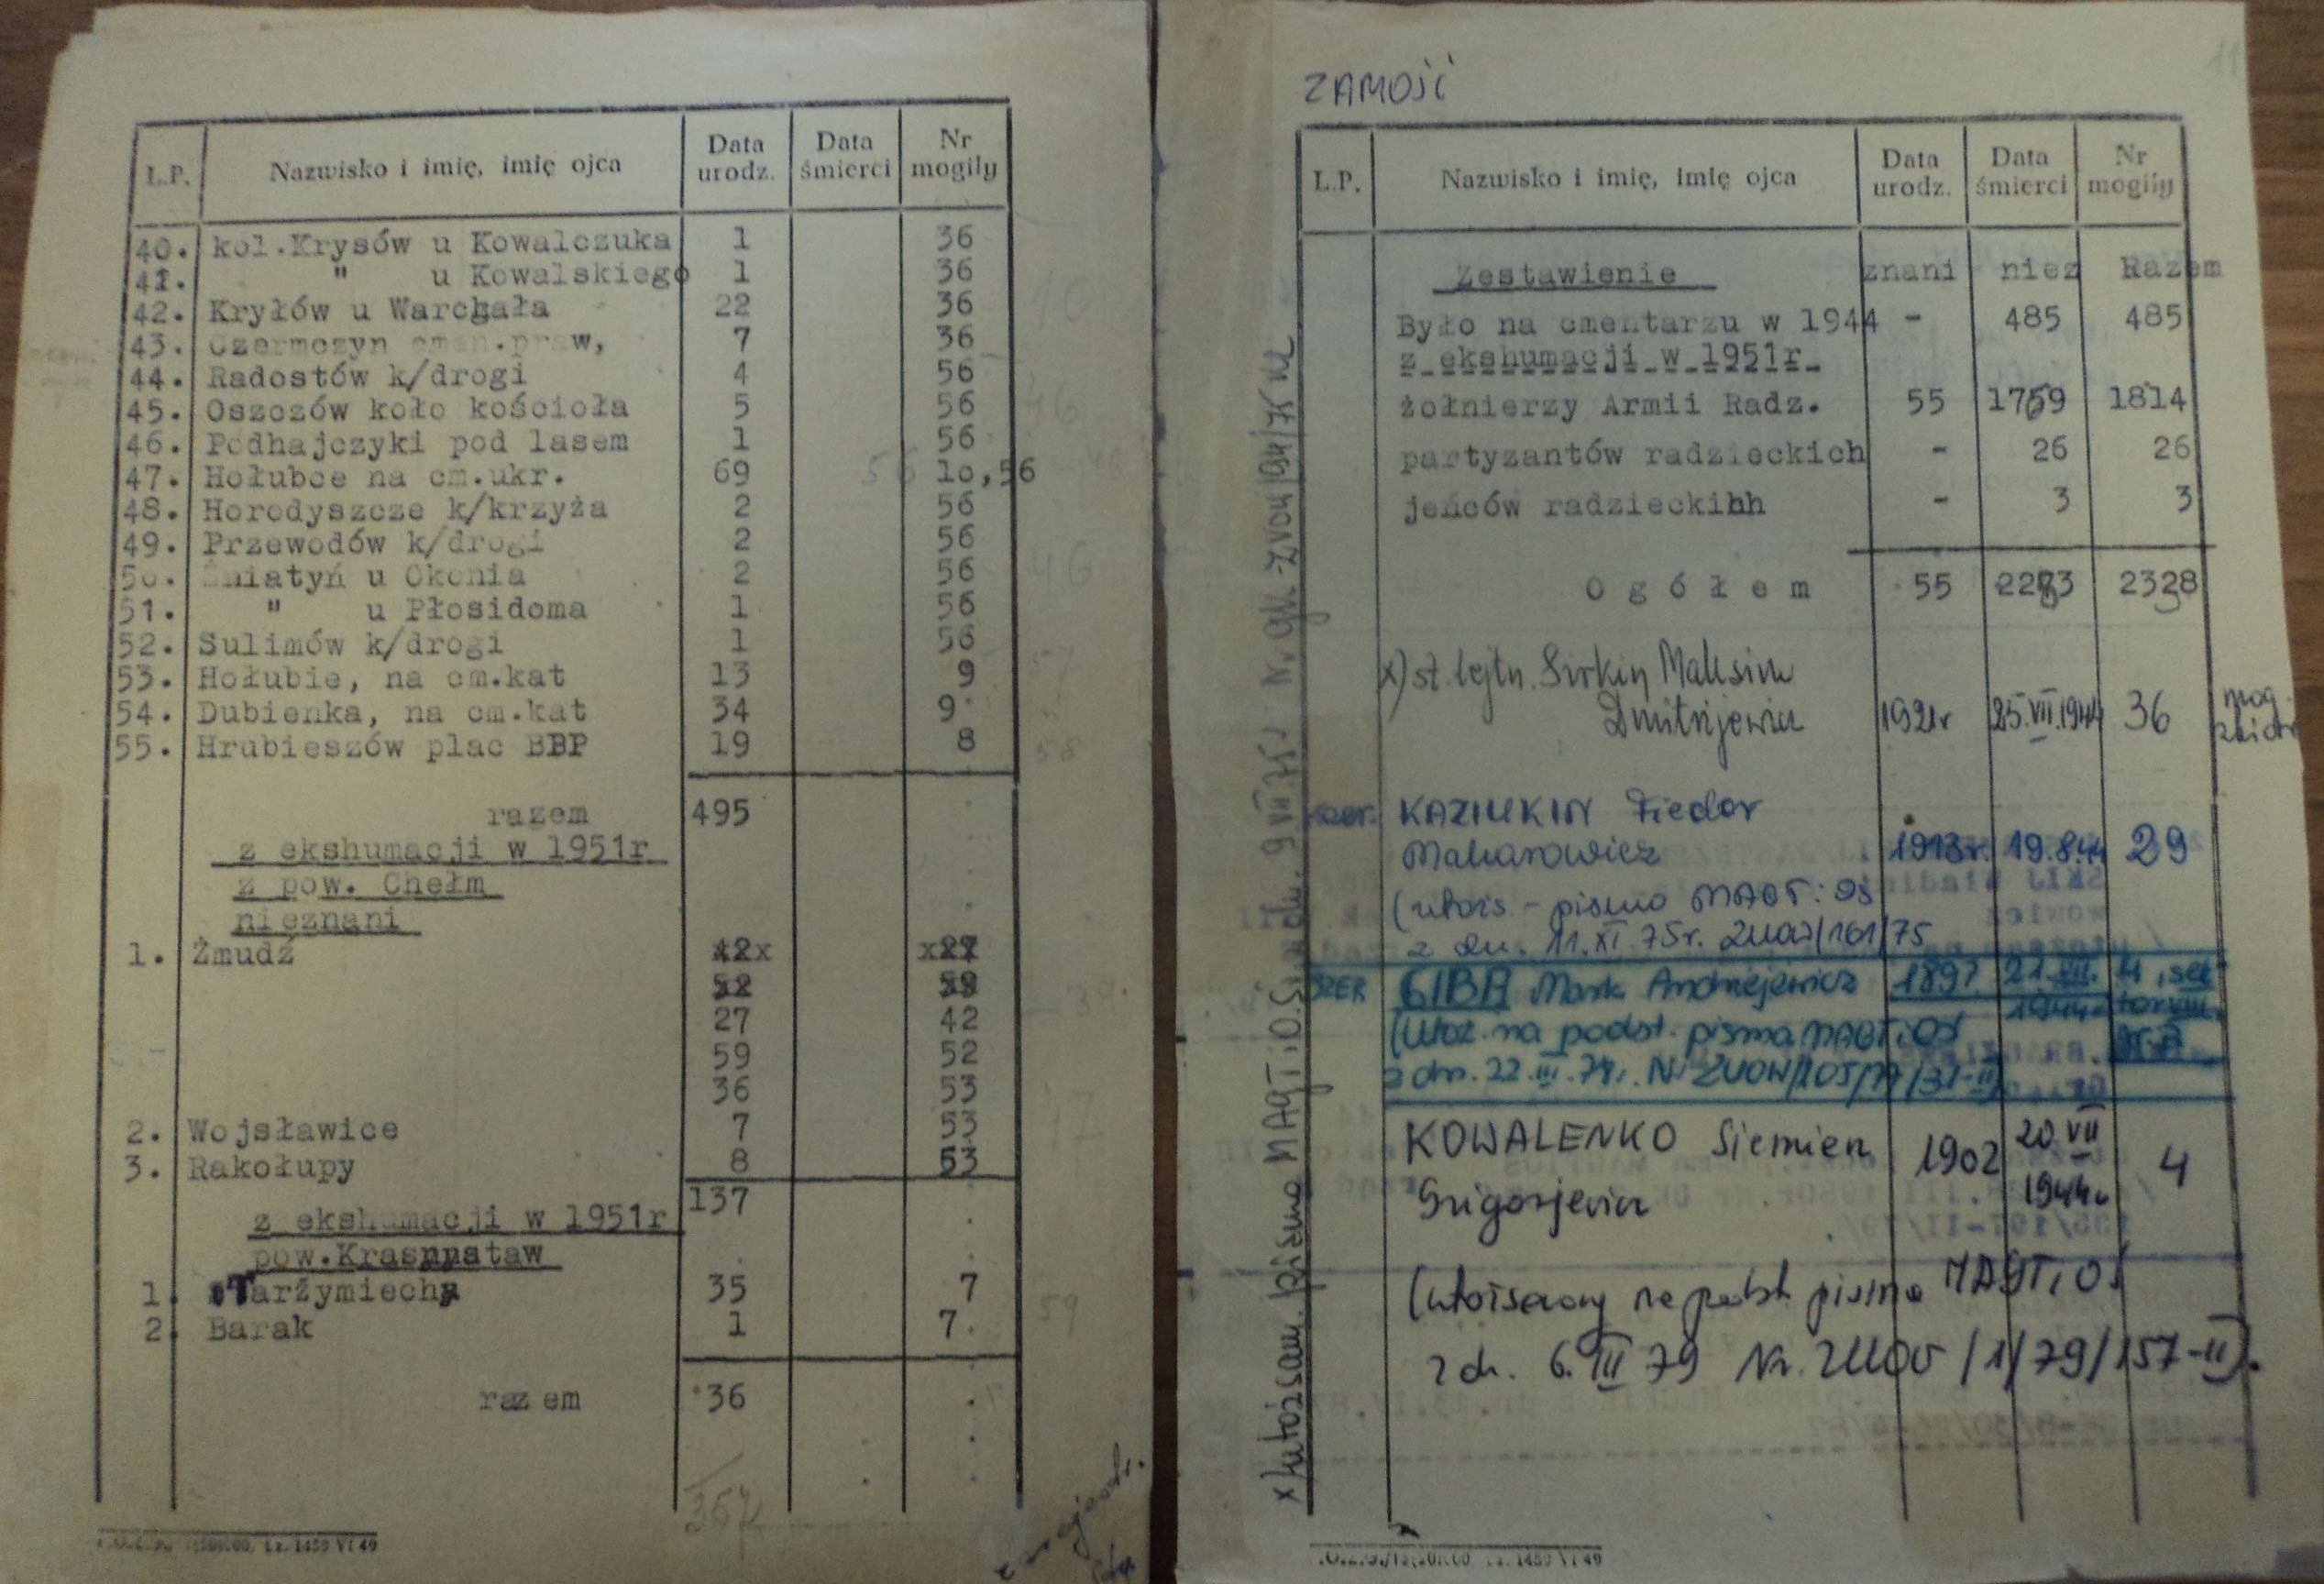 L.P. Nazwisko i imię, imię ojca Data urodz. Data śmierci Nr mogiły
40. kol.Krysów u Kowalczuka 1 36
41. " u Kowalskiego 1 36
42. Kryłów u Warchała 22 36
43. Czermczyn 7 36
44. Radostów k/drogi 4 56
45. Oszczów koło kościoła 5 56
46. Podhajczyki pod lasem 1 56
47. Hołubce na cm.ukr. 69 10,56
48. Horodyszcze k/krzyża 2 56
49. Przewodów k/drogi 2 56
50. u Okonia 2 56
51. " u Płosidoma 1 56
52. Sulimów k/drogi 1 56
53. Hołubie, na cm.kat 13 9
54. Dubienka, na cm.kat 34 9
55. Hrubieszów plac BBP 19 8
razem 495
z ekshumacji w 1951r
z pow. Chełm
nieznani
1. Żmudź
27 42
59 52
36 53
2. Wojsławice 7 53
3. Rakołupy 8 53
137
z ekshumacji w 1951r
pow.Krasnystaw
1. Tarzymiechy 35 7
2. Barak 1 7
razem 36
357
ZAMOŚĆ
11
L.P. Nazwisko i imię, imię ojca Data urodz. Data śmierci Nr mogiły
Zestawienie znani niez Razem
Było na cmentarzu w 1944 - 485 485
z ekshumacji w 1951r.
żołnierzy Armii Radz. 55 1759 1814
partyzantów radzieckich - 26 26
jeńców radzieckihh - 3 3
Ogółem 55 2273 2328
x) st. lejtn. Sirkin Maksim
Dmitrijewicz 1921r 25.VII.1944 36 mog. zbior
szer. KAZIUKIN Fiedor
Makarowicz 1913r. 19.8.44 29
(utoż. - pismo MAGT i OŚ
z dn. 11.XI.75r. ZUOW/161/75
SZER GIBA Mark Andrzejewicz 1897 21.VII. 1944
(Utoż. na podst. pisma MAGTiOŚ
z dn. 22.III.79r. Nr ZUOW/105/79/31-II)
KOWALENKO Siemien 1902 20.VII 1944r 4
Grigorjewicz
(utożsamiony na podst. pisma MAGTiOŚ
z dn. 6.III 79 Nr. ZUOW/1/79/157-II).
x) utożsam. pismo MAGTiOŚ z dn. 9.VII.75r